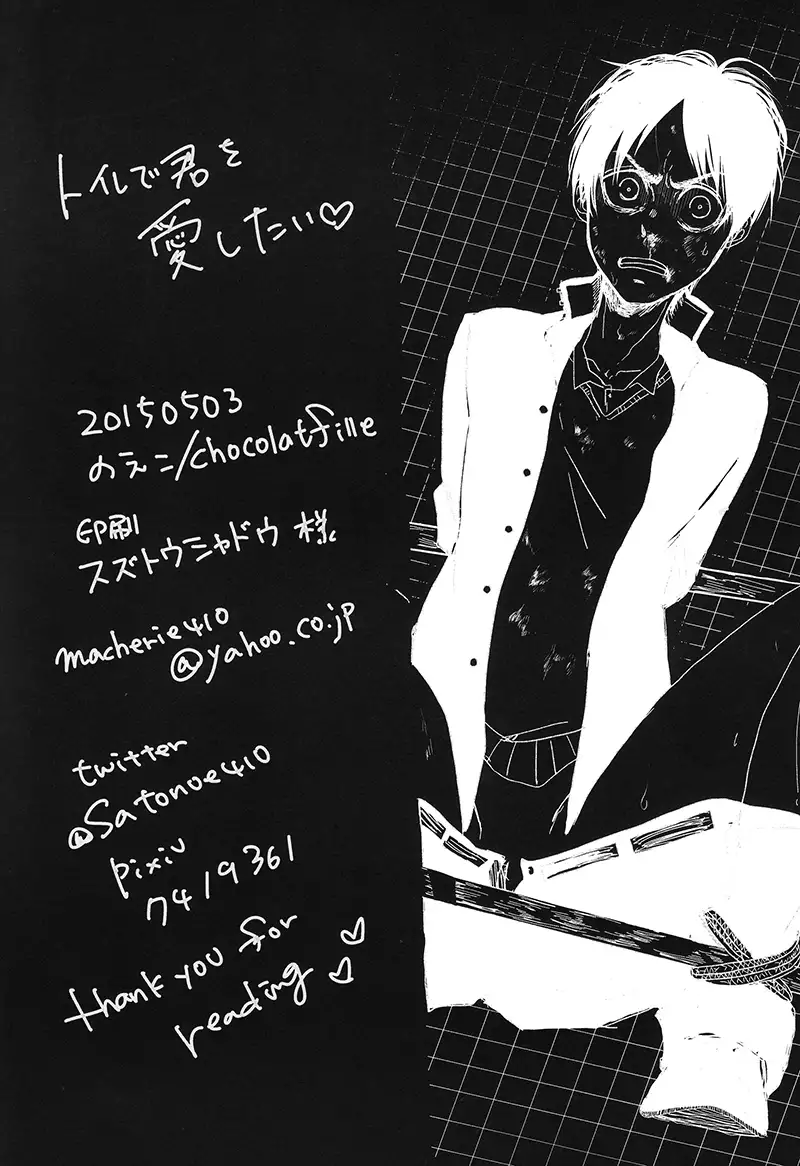 トイレで君を
愛したい♡
20150503
のえこ/chocolatfille
印刷
スズトウシャドウ 様
macherie410
@yahoo.co.jp
twitter
@Satonoe410
pixiv
7419361
thank you for
reading ♡♡